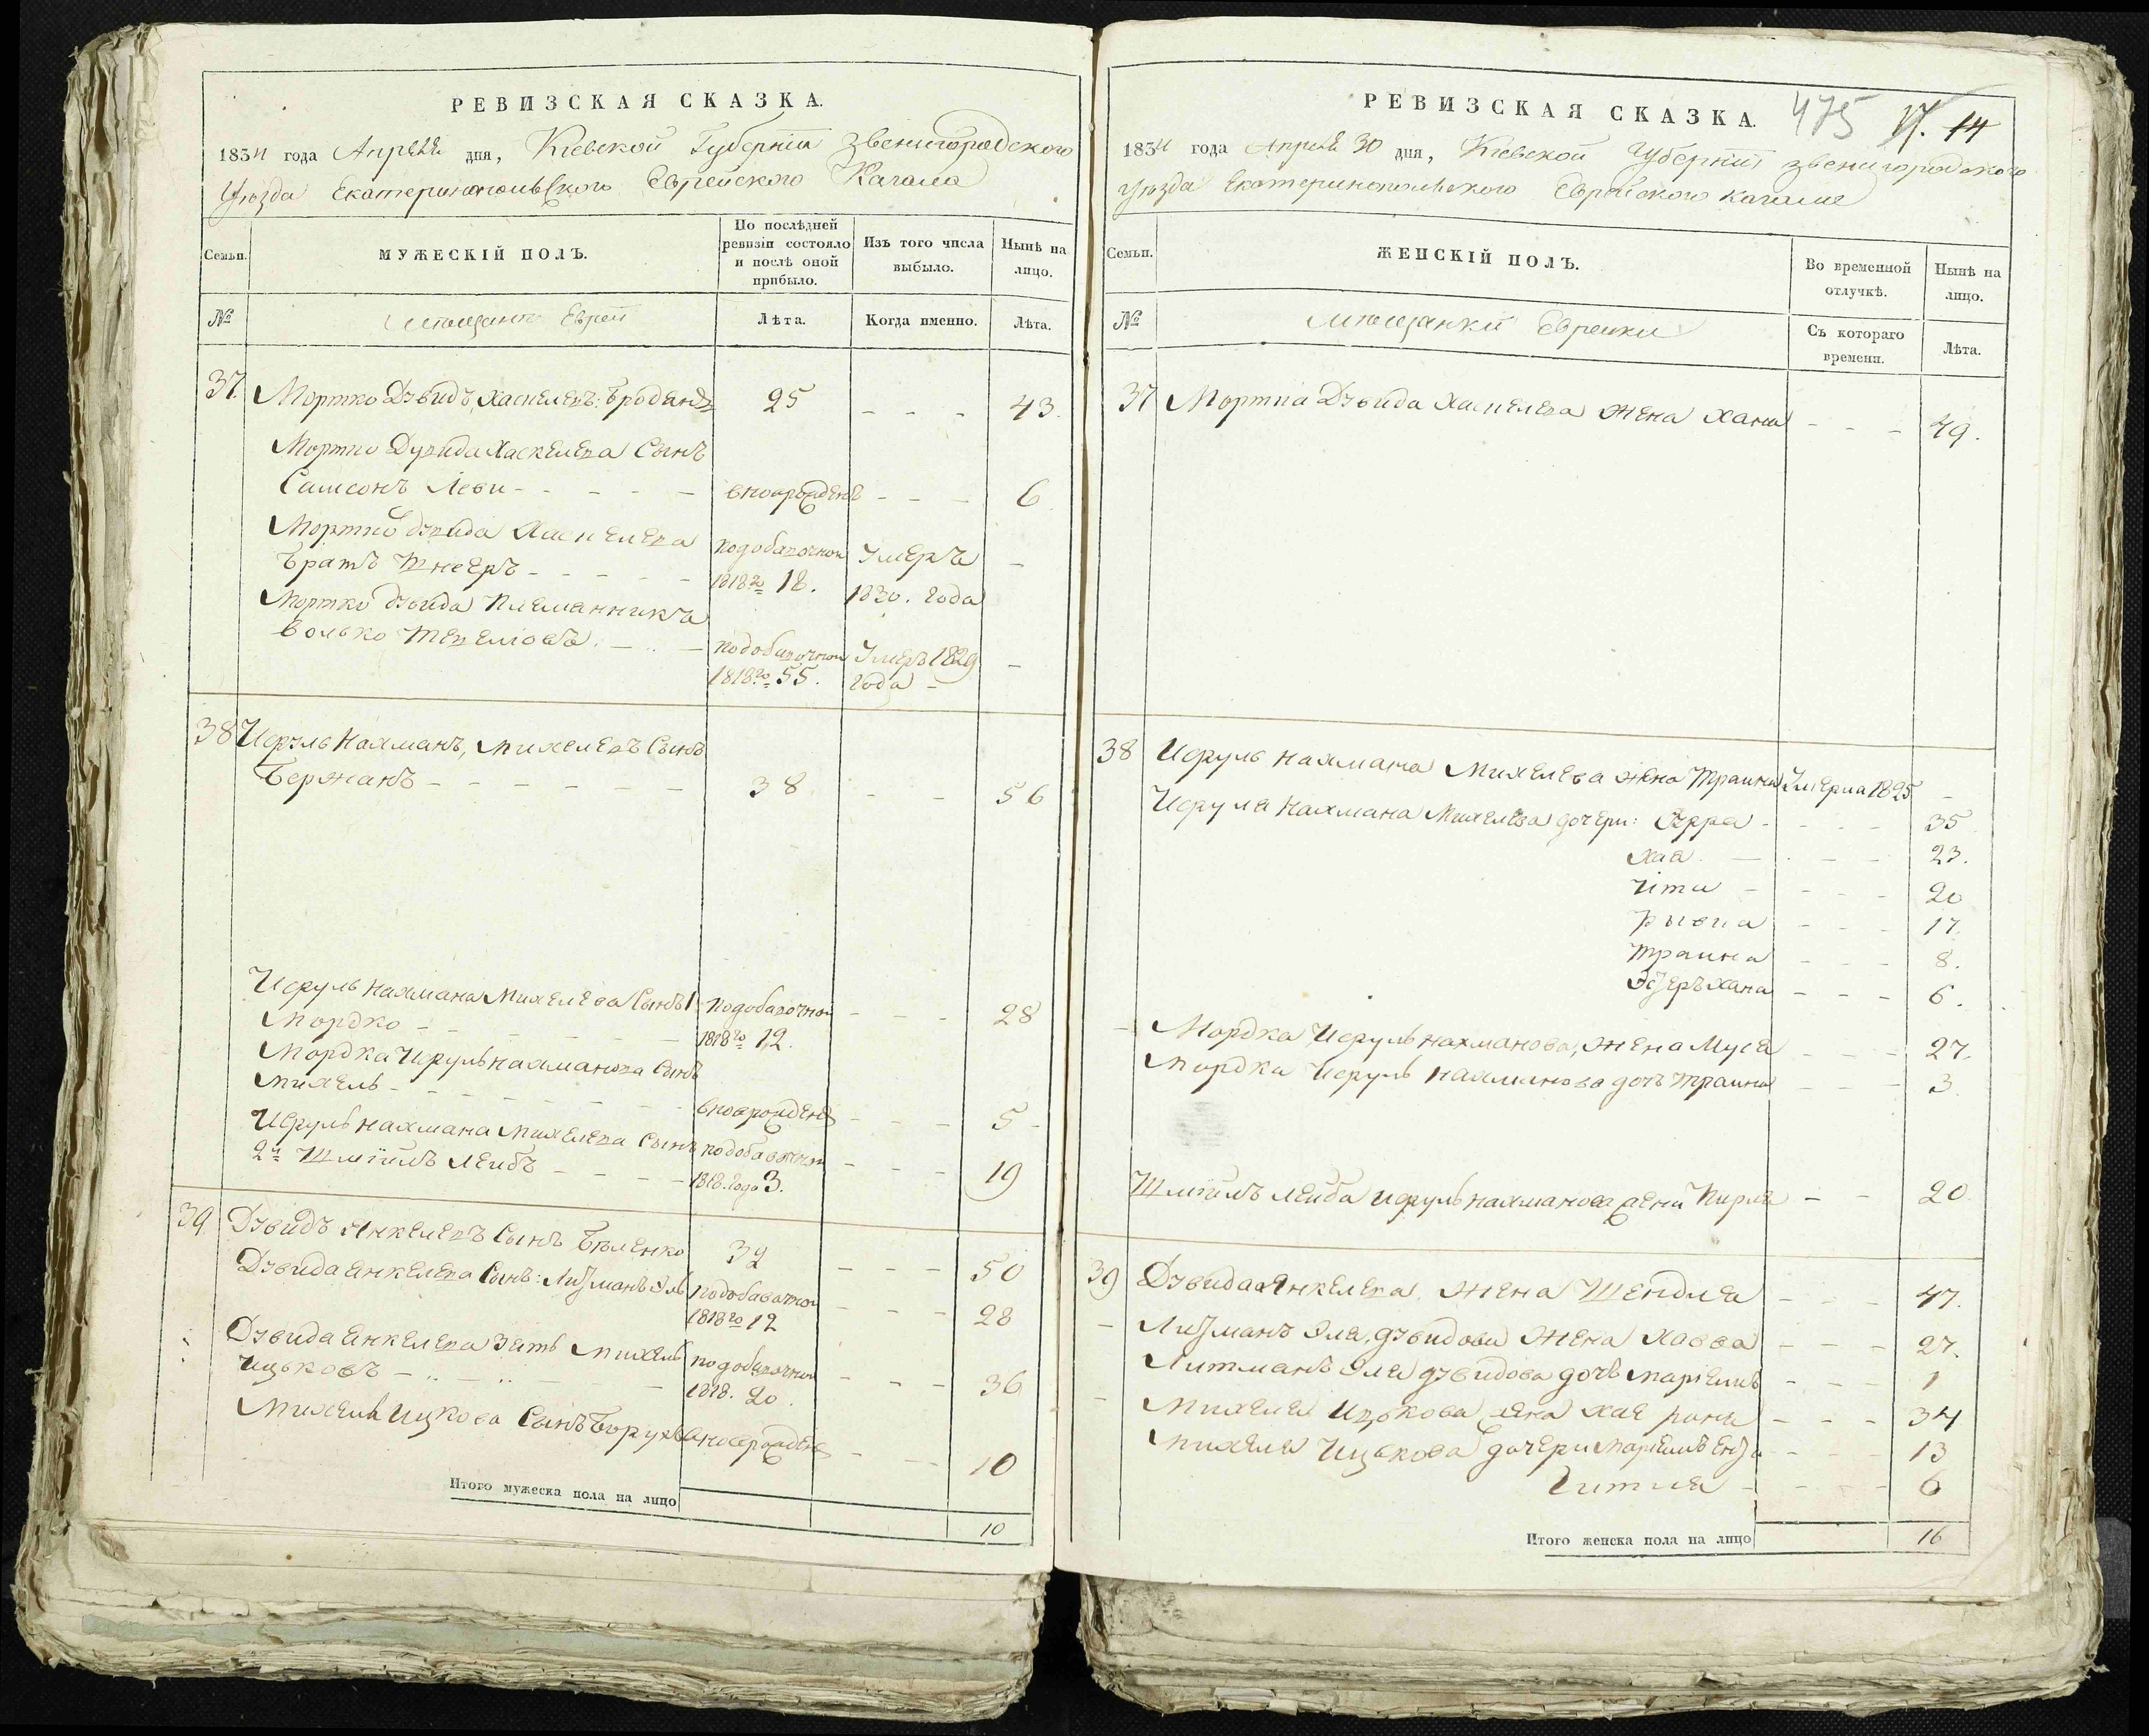 РЕВИЗСКАЯ СКАЗКА.
1834 года Апреля дня, Кіевской Губерніи Звенигородского
Уезда Екатеринопольского Еврейского Кагала
Семьи. МУЖЕСКІЙ ПОЛЪ. По послѣдней ревизіи состояло и послѣ оной прибыло. Изъ того числа выбыло. Нынѣ на лицо.
№ Мѣщанъ Еврей Лѣта. Когда именно. Лѣта.
37. Мортко Дувидъ, Хаскелевъ: Бродянъ 25 - - - 43.
Мортко Дувида Хаскелева Сынъ
Самсонъ Леви - - - - - вновроженъ - - - 6
Мортко Дувида Хаскелева подобавочной Умеръ -
братъ Шнееръ - - - - - 1818го 18. 1830. года
Мортко Дувида Племанникъ
Волько - - - подобавочной Умеръ 1829 -
1818го 55. года -
38 Исруль Нахманъ, Михелевъ Сынъ
Бержанъ - - - - - - 38 - - 56
Исруль Нахмана Михелева Сынъ 1 подобавочной - - - 28
Мордко - - - - - - 1818го 12.
Мордка Исруль Нахманова Сынъ
Михель - - - - - - вновроженъ - - - 5 -
Исруль Нахмана Михелева Сынъ подобавочной - - - 19
2й Шміилъ Лейбъ - - - - 1818. года 3.
39 Дувидъ Янкелевъ Сынъ Беленко 32 - - - 50
Дувида Янкелева Сынъ: Литманъ Эль подобавочной - - - 28
1818го 12
Дувида Янкелева Зять Михель подобавочной - - - 36
Ицьковъ - - - 1818. 20.
Михеля Ицкова Сынъ Борухъ вновроженъ - - - 10
Итого мужеска пола на лицо 10
РЕВИЗСКАЯ СКАЗКА. 475 17. 14
1834 года Апреля 30 дня, Кіевской Губерніи Звенигородского
Уезда Екатеринопольского Еврейского Кагала
Семьи. ЖЕНСКІЙ ПОЛЪ. Во временной отлучкѣ. Нынѣ на лицо.
№ Мѣщанки Еврейки Съ котораго времени. Лѣта.
37 Мортка Дувида Хаскелева жена Хана - - - 49.
38 Исруль Нахмана Михелева жена Траина Умерла 1825 -
Исруля Нахмана Михелева дочери: - - - 35
Хая - - - 23.
Ита - - - 20
Рывка - - - 17.
Траина - - - 8.
Эстеръ Хана - - - 6.
- Мордка Исруль Нахманова, жена Муся - - - 27.
Мордка Исруль Нахманова дочь Траина - - - 3
Шміилъ Лейба Исруль Нахманова жена Пирля - - 20
39 Дувида Янкелева, жена Шендля - - - 47.
- Литманъ Эля, Дувидова жена Хавва - - - 27.
Литманъ Эля Дувидова дочь Маріемъ - - - 1
- Михеля Ицькова жена Хае - - - 34
Михеля Ицькова дочери Маріемъ Ента - - - 13
Гитля - - - 6
Итого женска пола на лицо 16